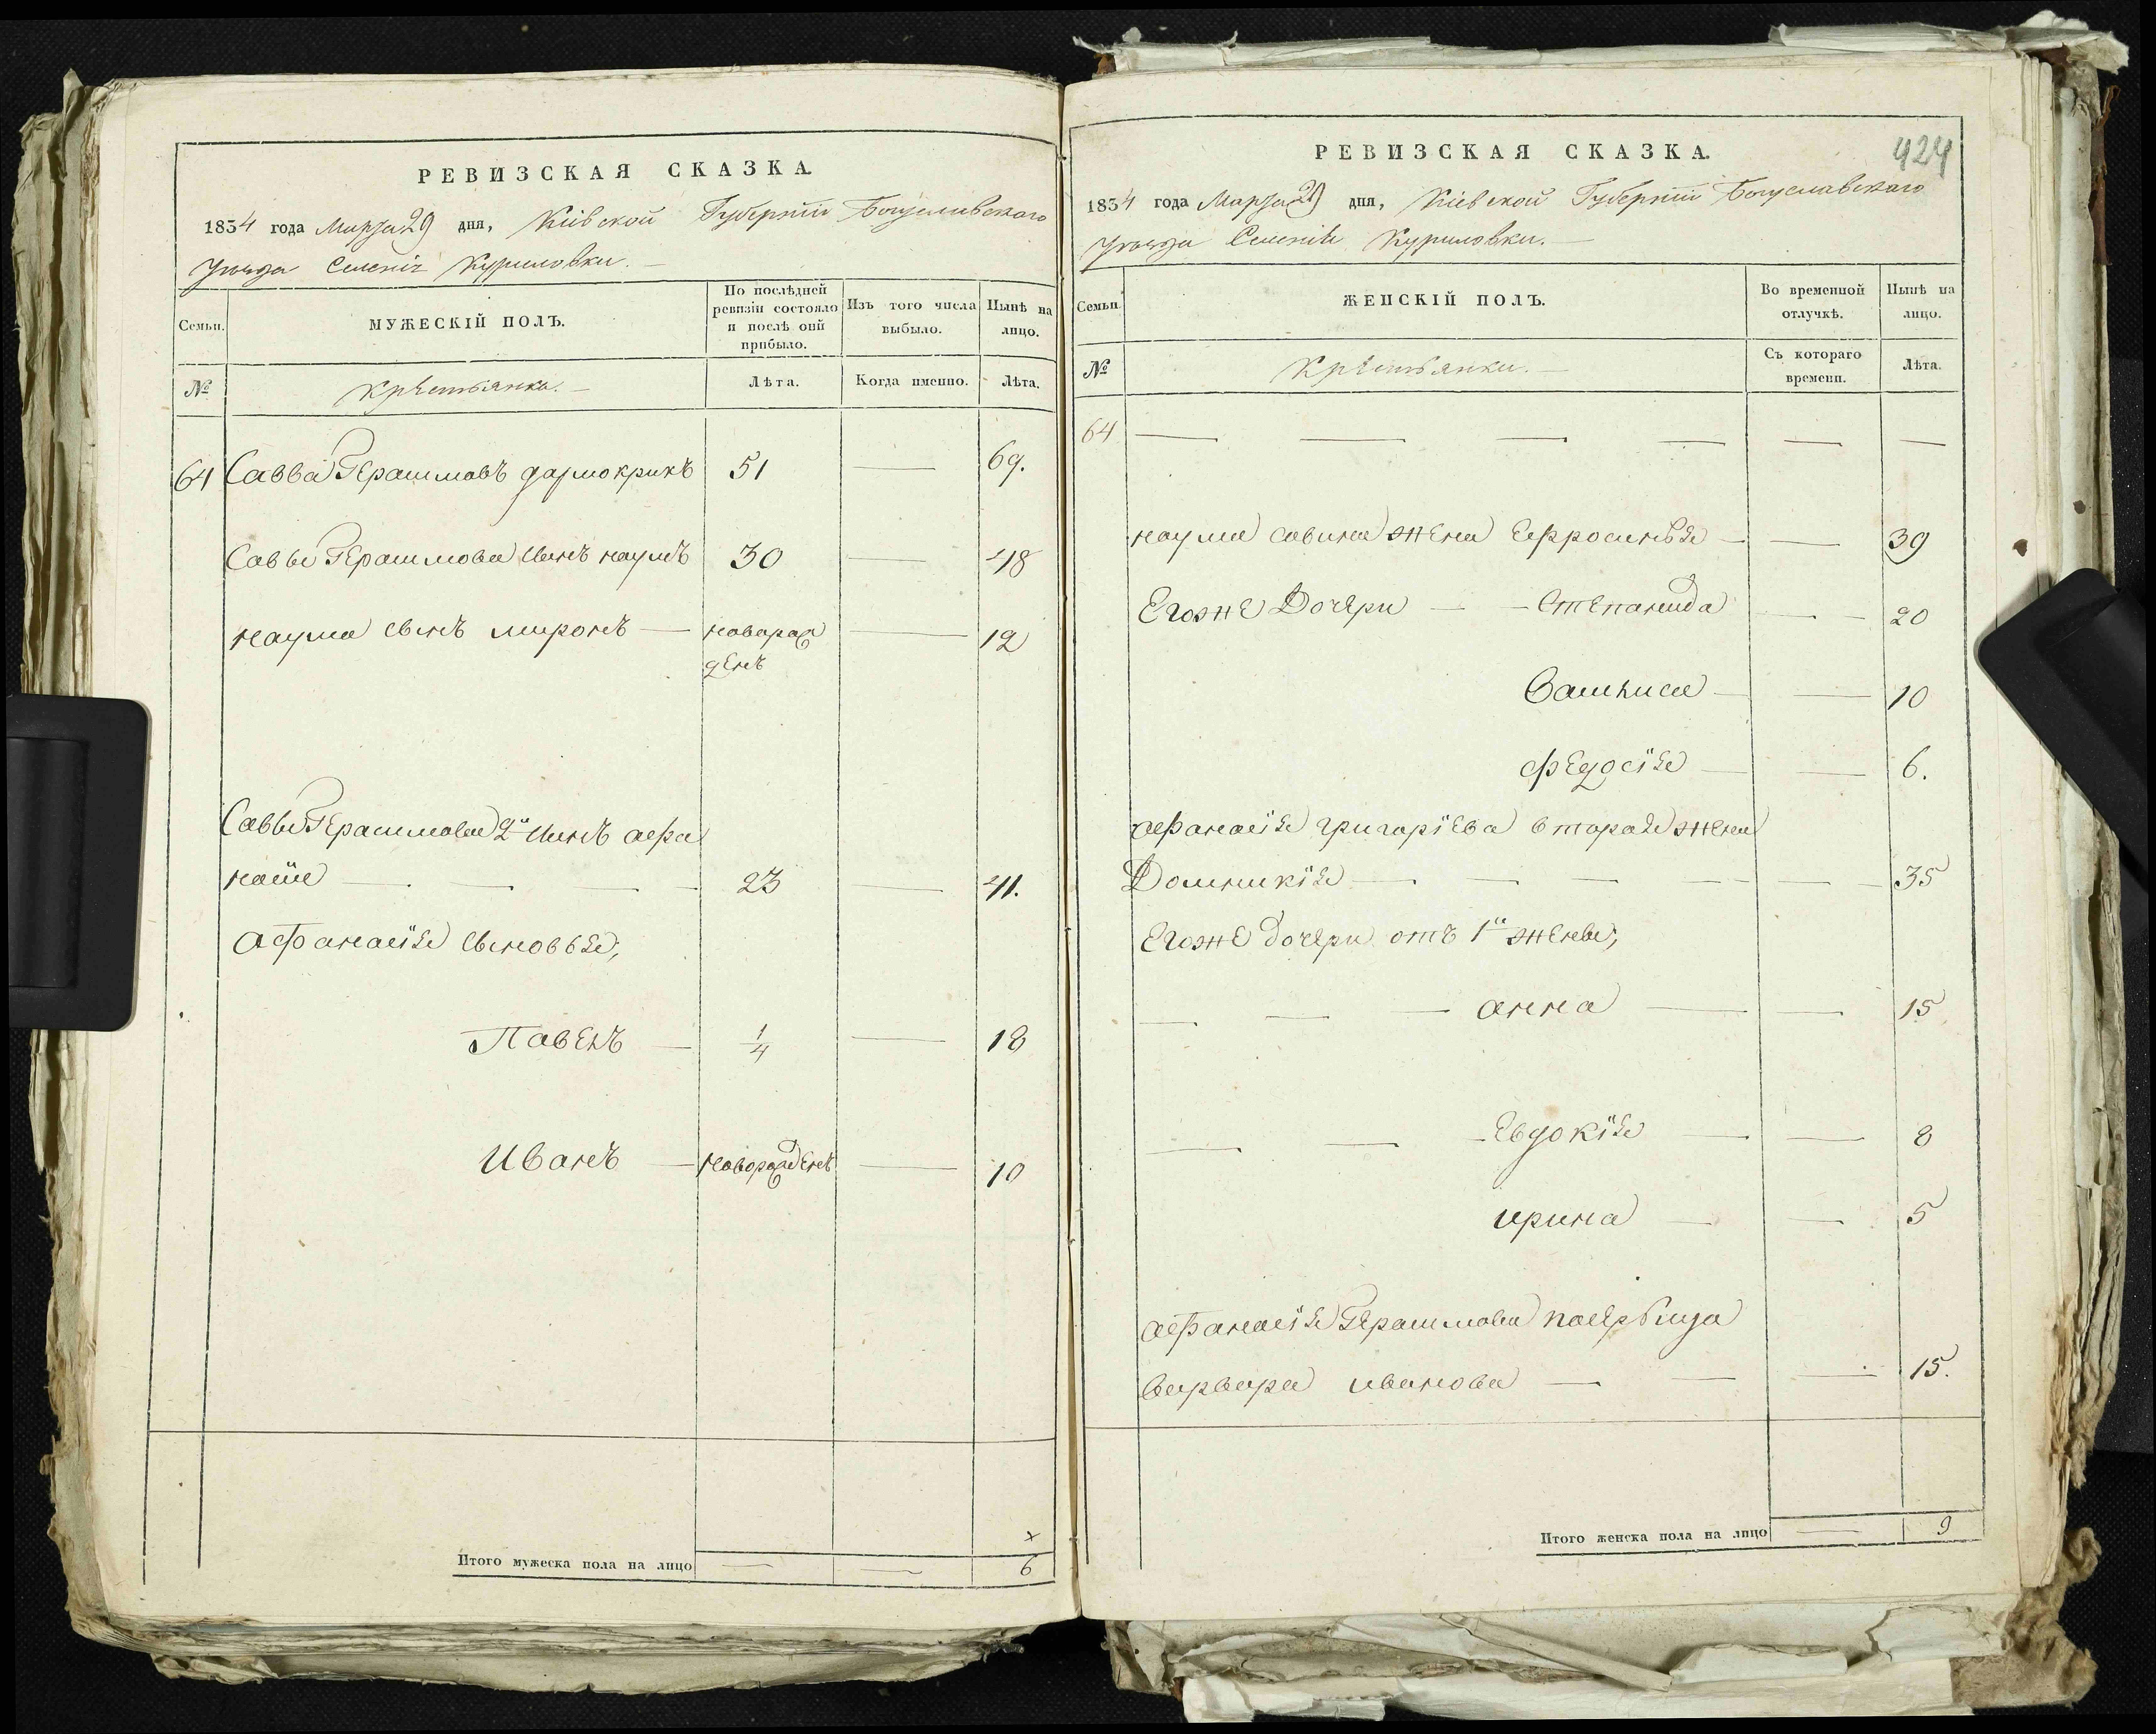 РЕВИЗСКАЯ СКАЗКА.
1834 года Марта 29 дня, Кіевской Губерніи Богуславскаго
Уѣзда Селенія Куриловки.
Семьи.
МУЖЕСКІЙ ПОЛЪ.
По послѣдней ревизіи состояло и послѣ оній прибыло.
Изъ того числа выбыло.
Нынѣ на лицо.
№
Крестьянка.
Лѣта.
Когда именно.
Лѣта.
64 Савва Герасимовъ 51 — 69.
Саввы Герасимова сынъ наумъ 30 — 48
наума сынъ миронъ — наварож
денъ — 12
Саввы Герасимова 2й сынъ афа
насіи — 23 — 41.
Афанасія сыновья;
Павелъ — 1/4 — 18
Иванъ — новорожденъ — 10
Итого мужеска пола на лицо — — 6
424
РЕВИЗСКАЯ СКАЗКА.
1834 года Марта 29 дня, Кіевской Губерніи Богуславскаго
Уѣзда Селенія Куриловки.
Семьи.
ЖЕНСКІЙ ПОЛЪ.
Во временной отлучкѣ.
Нынѣ на лицо.
№
Крестьянки.
Съ котораго времени.
Лѣта.
64 — — — — — —
наума савина жена Ефросинья — — 39
Егоже Дочери — — Степанида — — 20
Васитиса — — 10
федосія — — 6.
афанасія григоріева вторая жена
Домникія — — — — — — 35
Егоже дочери отъ 1й жены;
— — — анна — — 15
— — — Евдокія — — 8
ирина — — 5
афанасія Герасимова
варвара иванова — — — 15.
Итого женска пола на лицо — 9